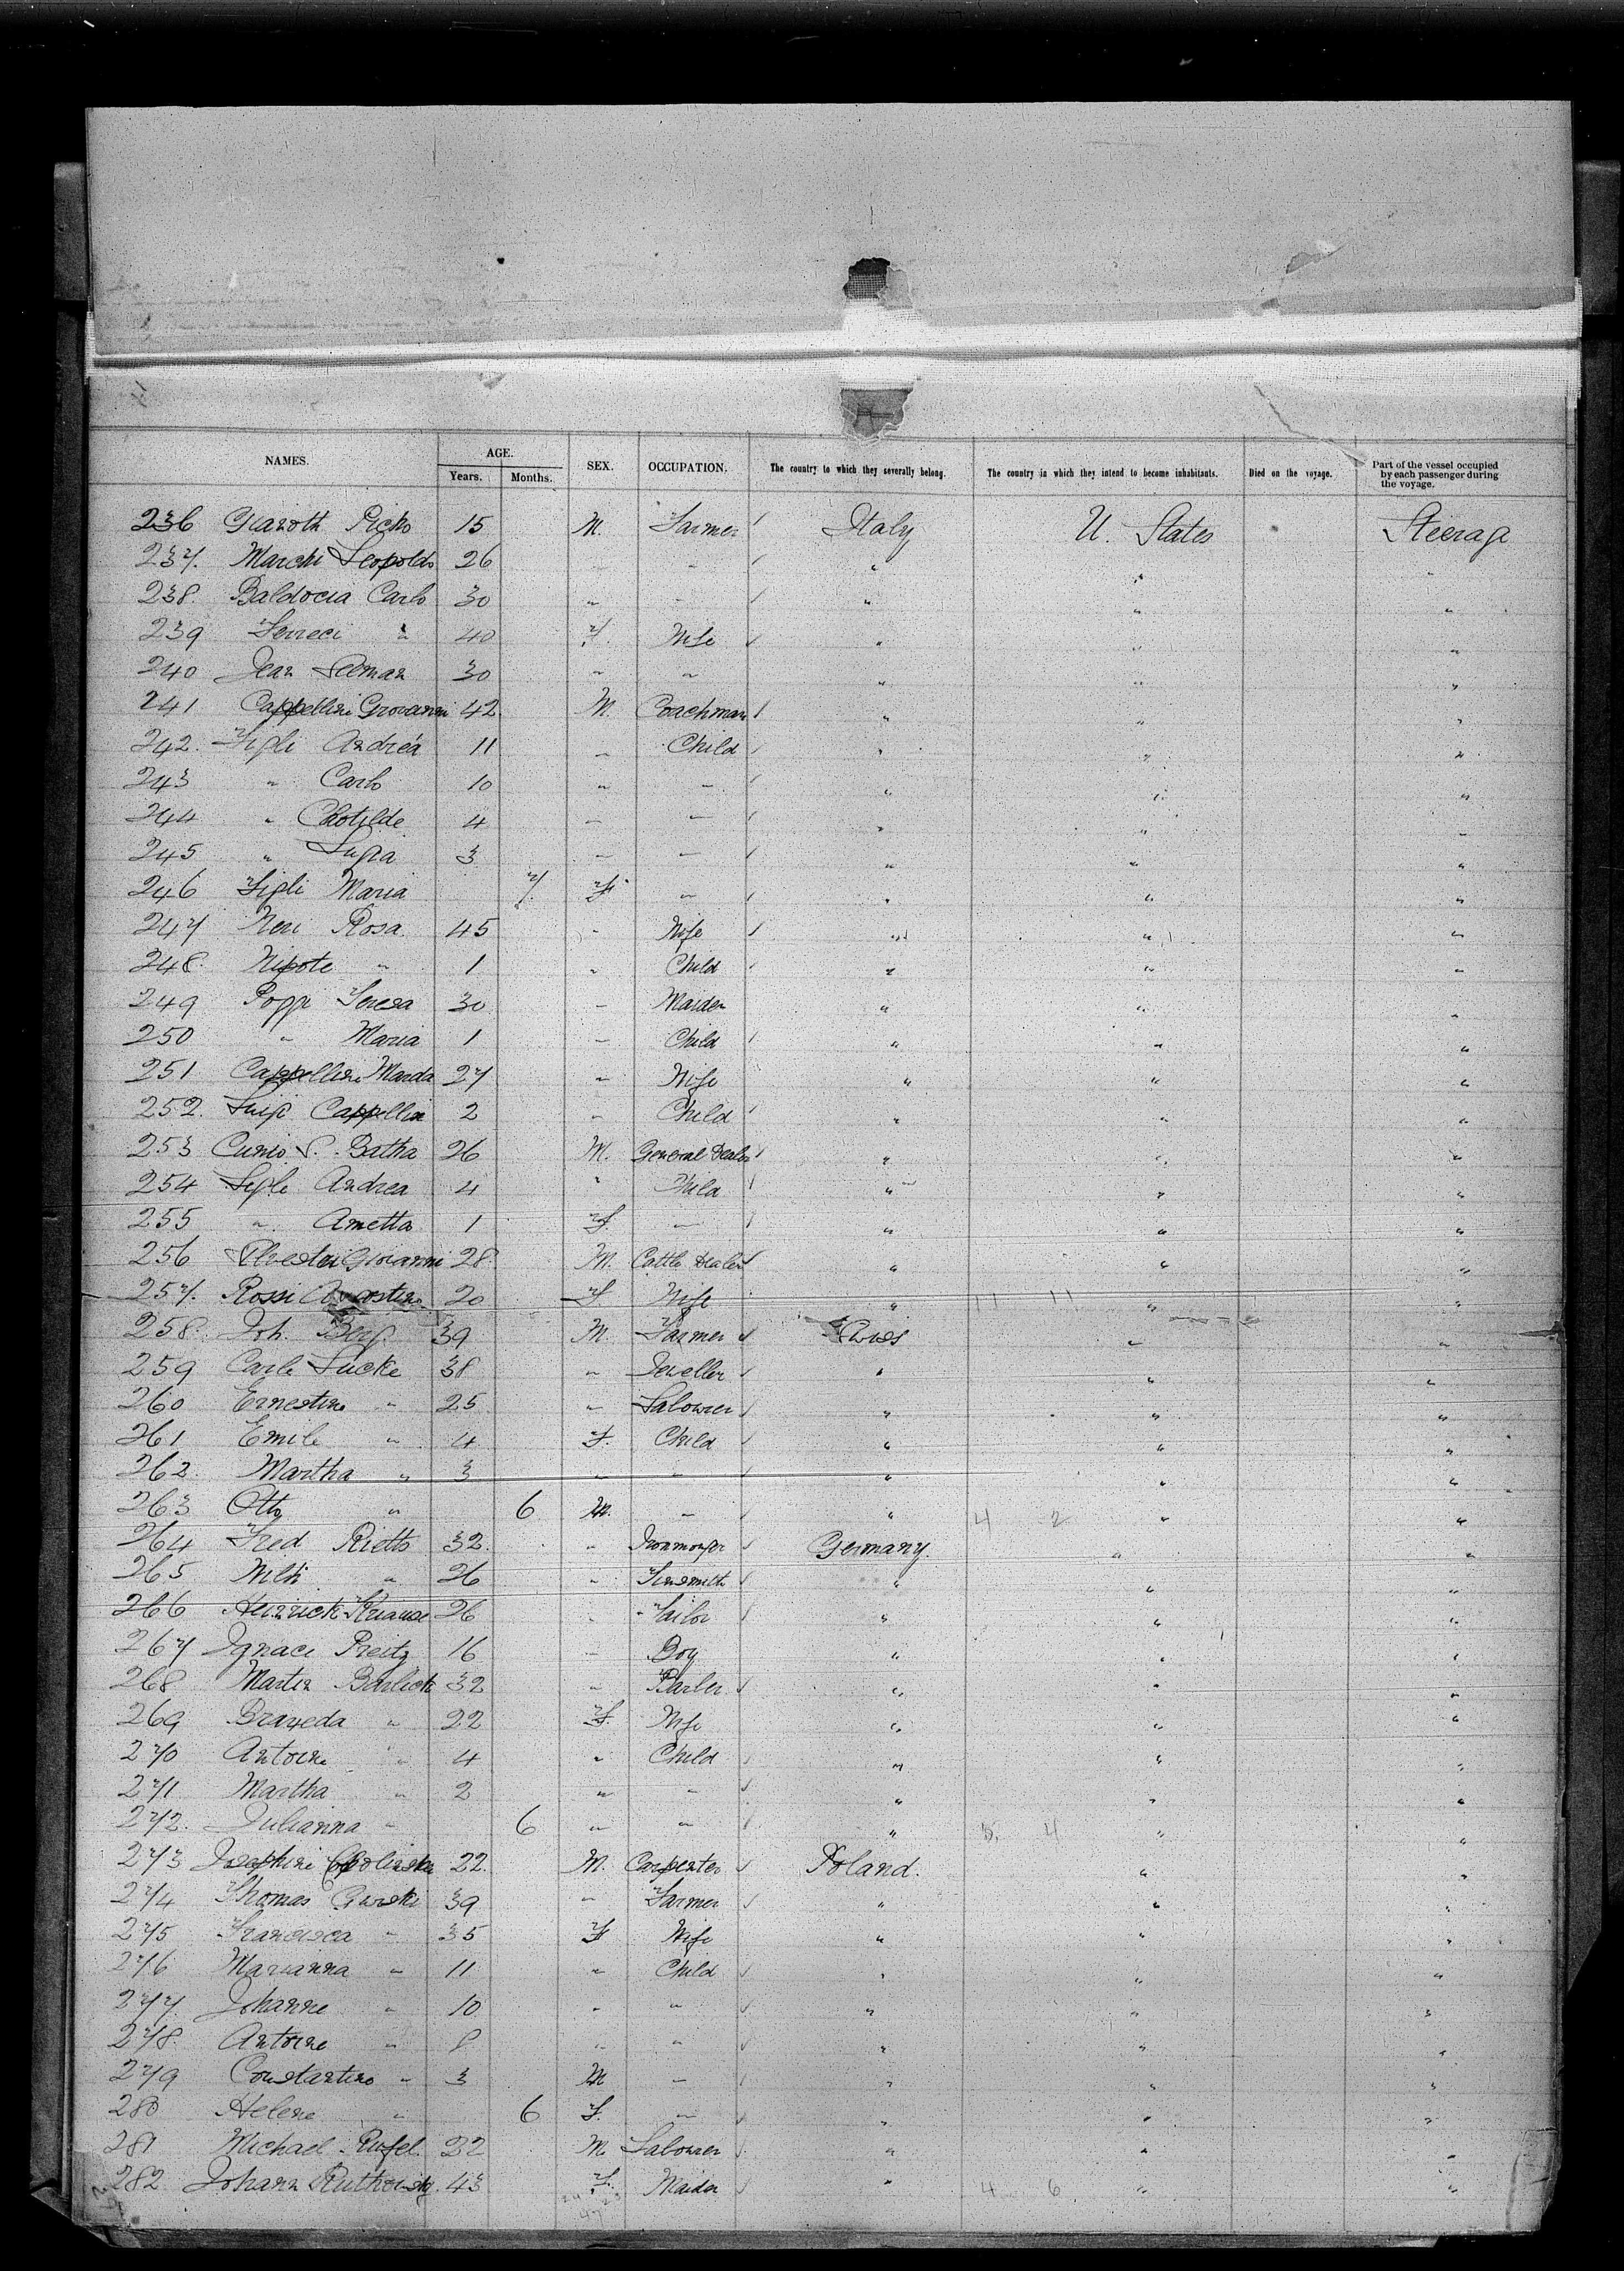 NAMES. AGE. Years. Months. SEX. OCCUPATION. The country to which they severally belong. The country in which they intend to become inhabitants. Died on the voyage. Part of the vessel occupied by each passenger during the voyage.
236 15 M. Farmer Italy U. States Steerage
237. Marchi Leopoldo 26 " " " " "
238. Baldocia Carlo 30 " " " " "
239 Ferreci " 40 F. Wife " " "
240 Jean 30 " " " " "
241 Cappellini Giovanni 42 M. Coachman " " "
242. Figli Andréa 11 " Child " " "
243 " Carlo 10 " " " " "
244 " Clotilde 4 " " " " "
245 " 3 " " " " "
246 Figli Maria 7 F " " " "
247 Neri Rosa 45 " Wife " " "
248. Nipote " 1 " Child " " "
249 Poppi Teresa 30 " Maiden " " "
250 " Maria 1 " Child " " "
251 Cappellini 27 " Wife " " "
252. Luigi Cappellini 2 " Child " " "
253 Batha 26 M. General Dealer " " "
254 Andrea 4 " Child " " "
255 " Ametta 1 F. " " " "
256 Giovanni 28. M. Cattle Dealer " " "
257. Rossi 20 F Wife " " "
258. Joh. Berg 39 M. Farmer " "
259 Carl Lucke 38 " Jeweller " " "
260 Ernestine " 25 " Labourer " " "
261 Emile " 4 F. Child " " "
262. Martha " 3 " " " " "
263 Otto " 6 M. " " 4 2 " "
264 Fred Rietto 32. " Ironmonger Germany. " "
265 Wilh " 26 " Tinsmith " " "
266 Heinrich Krause 26 " Tailor " " "
267 Ignace Preitz 16 " Boy " " "
268 Martin Barlick 32 " Barber " " "
269 " 22 F. Wife " " "
270 Antoine " 4 " Child " " "
271 Martha " 2 " " " " "
272. Julianna " 6 " " " 5 4 " "
273 Josephine 22. M. Carpenter Poland. " "
274 Thomas Gurski 39 " Farmer " " "
275 Francisca " 35 F Wife " " "
276 Marianna " 11 " Child " " "
277. Johanne " 10 " " " " "
278. Antoine " 8 " " " " "
279 Constantino " 3 M " " " "
280 Helene " 6 F. " " " "
281 Michael Rufel. 32 M Labourer " " "
282. Johann 43 F. Maiden " 4 6 " "